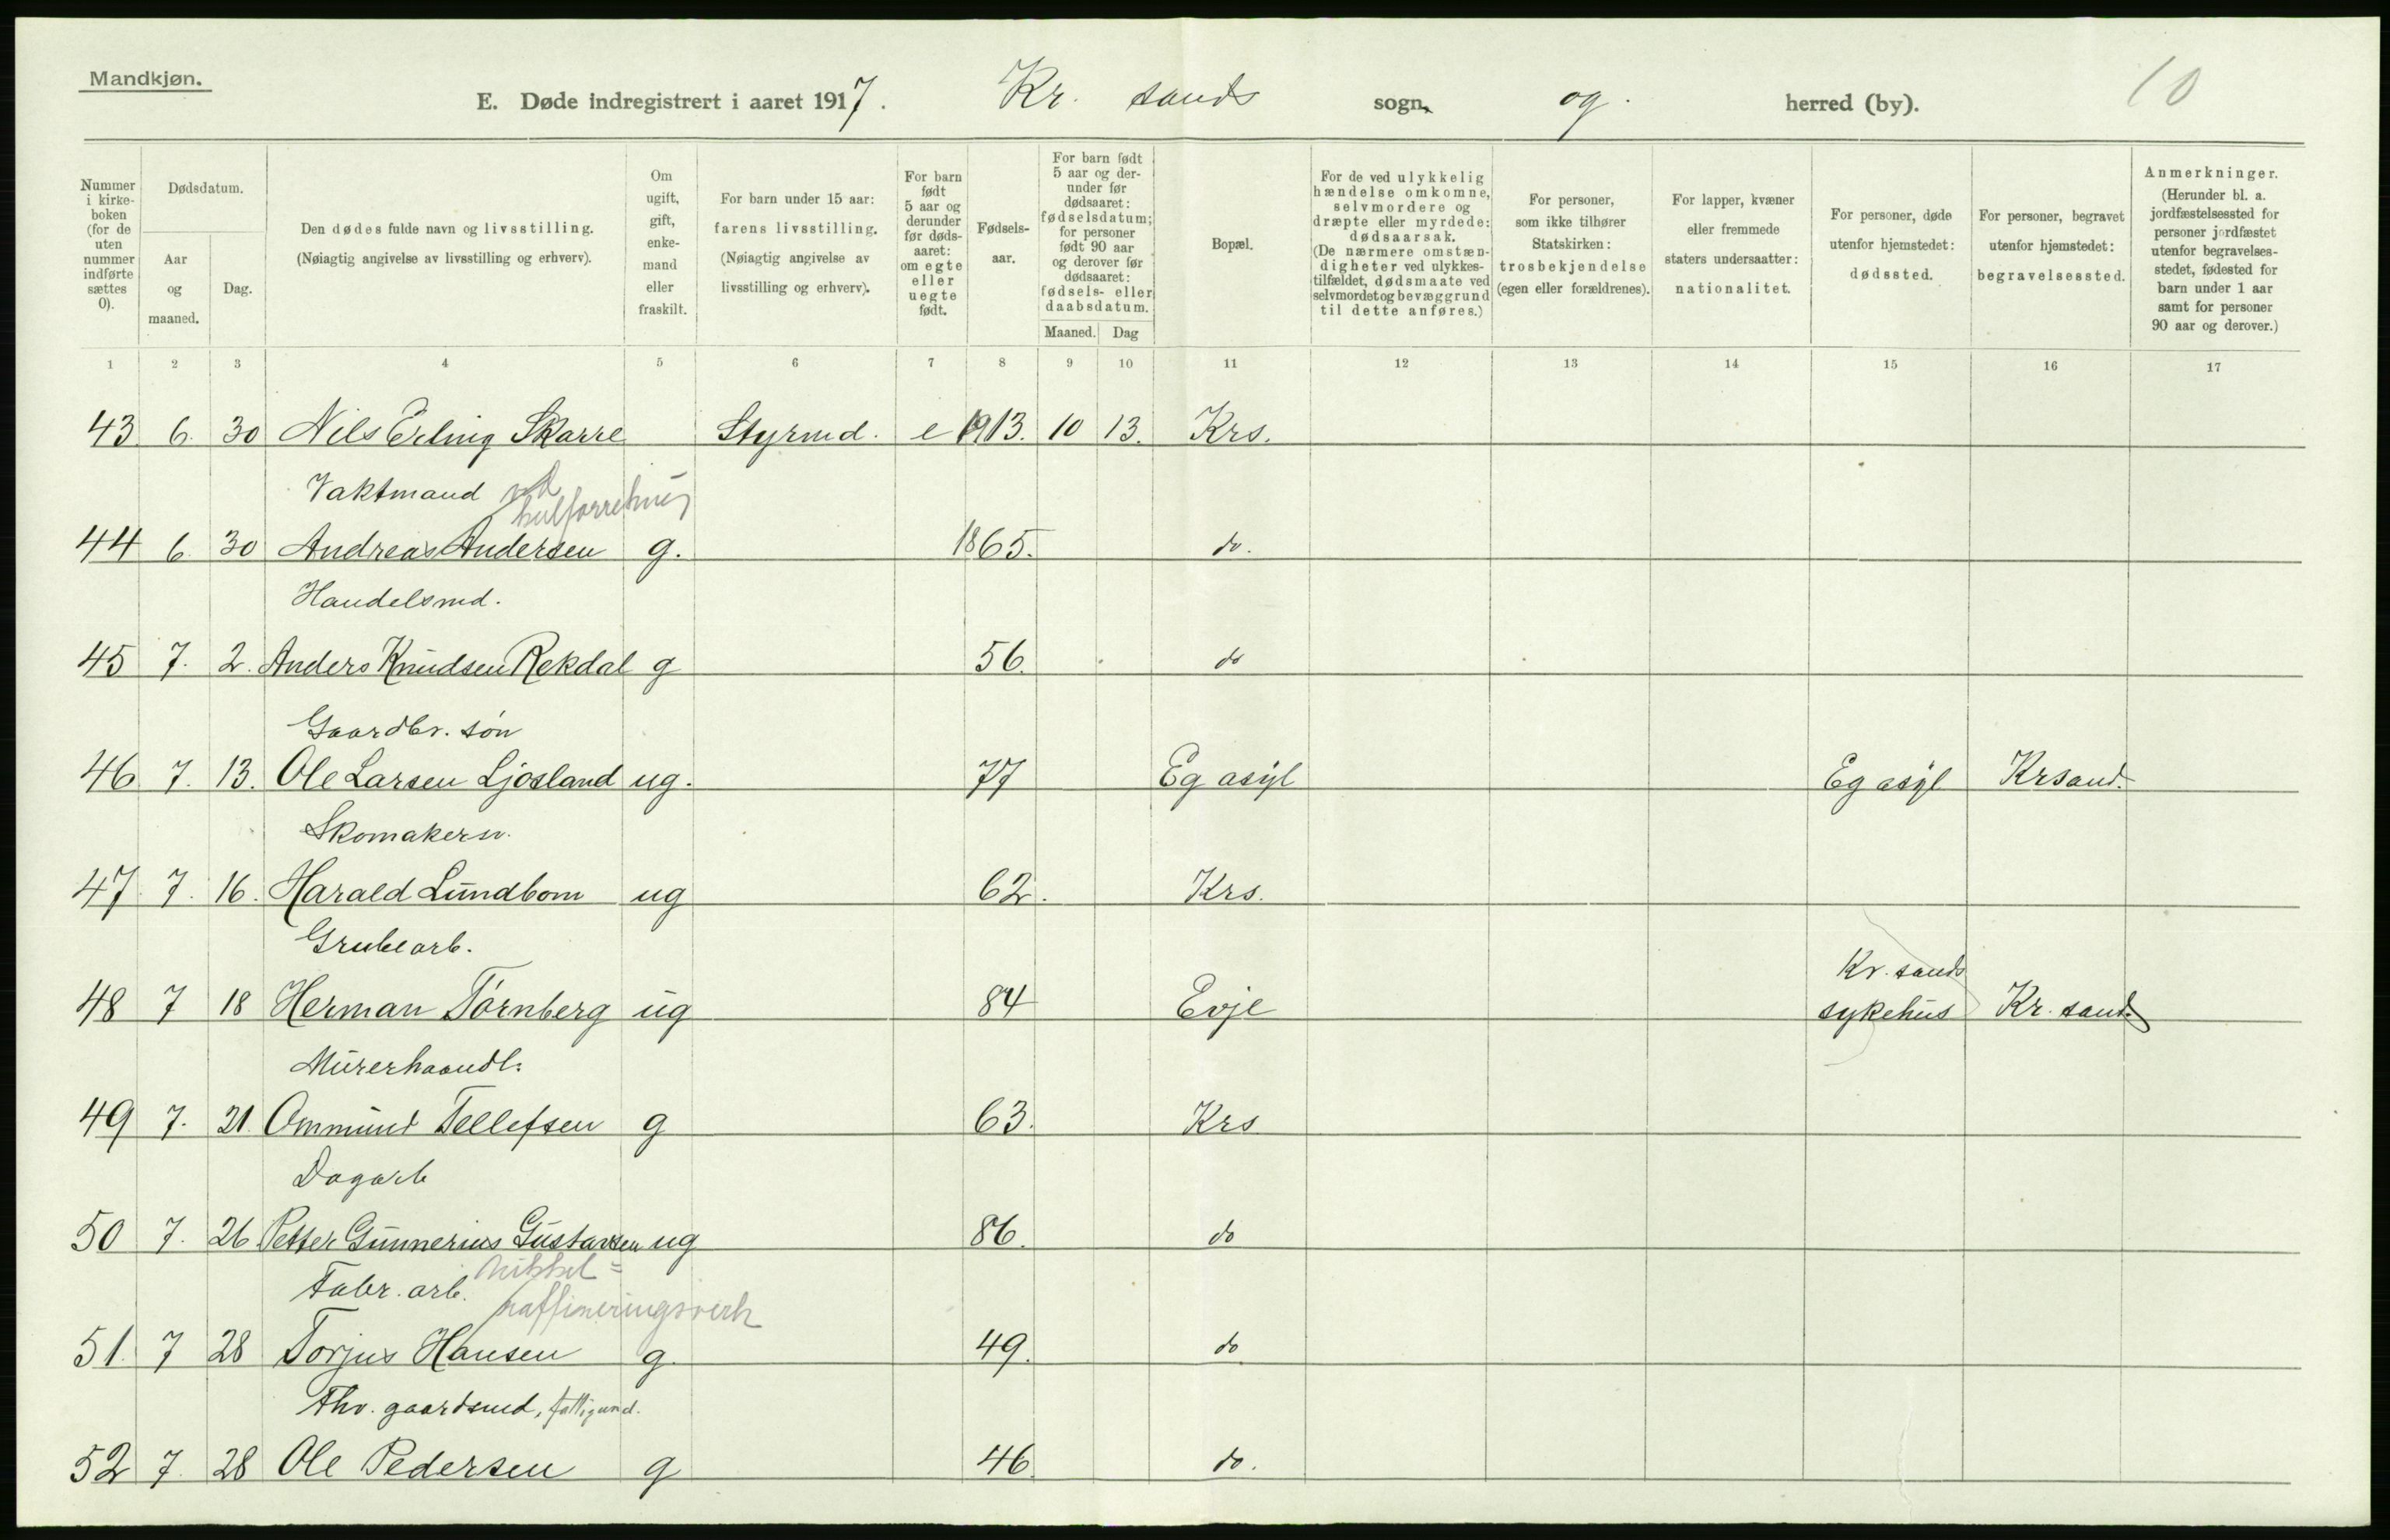 Mandkjøn.
E. Døde indregistrert i aaret 1917. Kr. sands sogn og herred (by). 10
Nummer i kirke-boken (for de uten nummer indførte sættes 0).
Dødsdatum.
Aar og maaned.
Dag.
Den dødes fulde navn og livsstilling.
(Nøiagtig angivelse av livsstilling og erhverv).
Om ugift, gift, enke-mand eller fraskilt.
For barn under 15 aar: farens livsstilling. (Nøiagtig angivelse av livsstilling og erhverv).
For barn født 5 aar og derunder før døds-aaret: om egte eller uegte født.
Fødsels-aar.
For barn født 5 aar og der-under før dødsaaret: fødselsdatum; for personer født 90 aar og derover før dødsaaret: fødsels- eller daabsdatum.
Maaned. Dag
Bopæl.
For de ved ulykkelig hændelse omkomne, selvmordere og dræpte eller myrdede: dødsaarsak. (De nærmere omstæn-digheter ved ulykkes-tilfældet, dødsmaate ved selvmordet og bevæggrund til dette anføres.)
For personer, som ikke tilhører Statskirken: trosbekjendelse (egen eller forældrenes).
For lapper, kvæner eller fremmede staters undersaatter: nationalitet.
For personer, døde utenfor hjemstedet: dødssted.
For personer, begravet utenfor hjemstedet: begravelsessted.
Anmerkninger. (Herunder bl. a. jordfæstelsessted for personer jordfæstet utenfor begravelses-stedet, fødested for barn under 1 aar samt for personer 90 aar og derover.)
1 2 3 4 5 6 7 8 9 10 11 12 13 14 15 16 17
43 6. 30 Nils Erling Skarre Styrmd. e 1913. 10 13. Krs.
Vaktmand ved
44 6. 30 Andreas Andersen g. 1865. do.
Handelsmd.
45 7. 2. Anders Knudsen Rekdal g 56. do
Gaardbr. søn
46 7. 13. Ole Larsen Ljosland ug. 77 Eg asyl Eg asyl Krsand.
Skomakersv.
47 7. 16. Harald Lundbom ug 62. Krs.
Grubearb.
Kr. sands
48 7 18 Herman Törnberg ug 84 Evje sykehus Kr. sand.
Murerhaandl.
49 7. 21. Ommund Tellefsen g 63. Krs
Dagarb
50 7. 26 Petter Gunnerius Gustavsen ug 86. do
Nikkel=
Fabr. arb. raffineringsverk
51. 7 28 Torjus Hansen g. 49. do
Fhv. gaardsmd, fattigund.
52 7. 28 Ole Pedersen g 46. do.